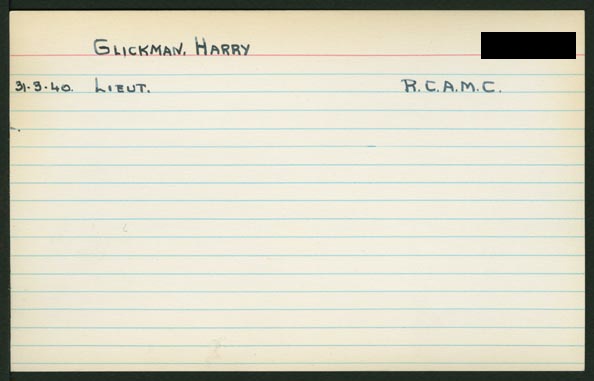 GLICKMAN, HARRY
31-3-40. LIEUT. R.C.A.M.C.